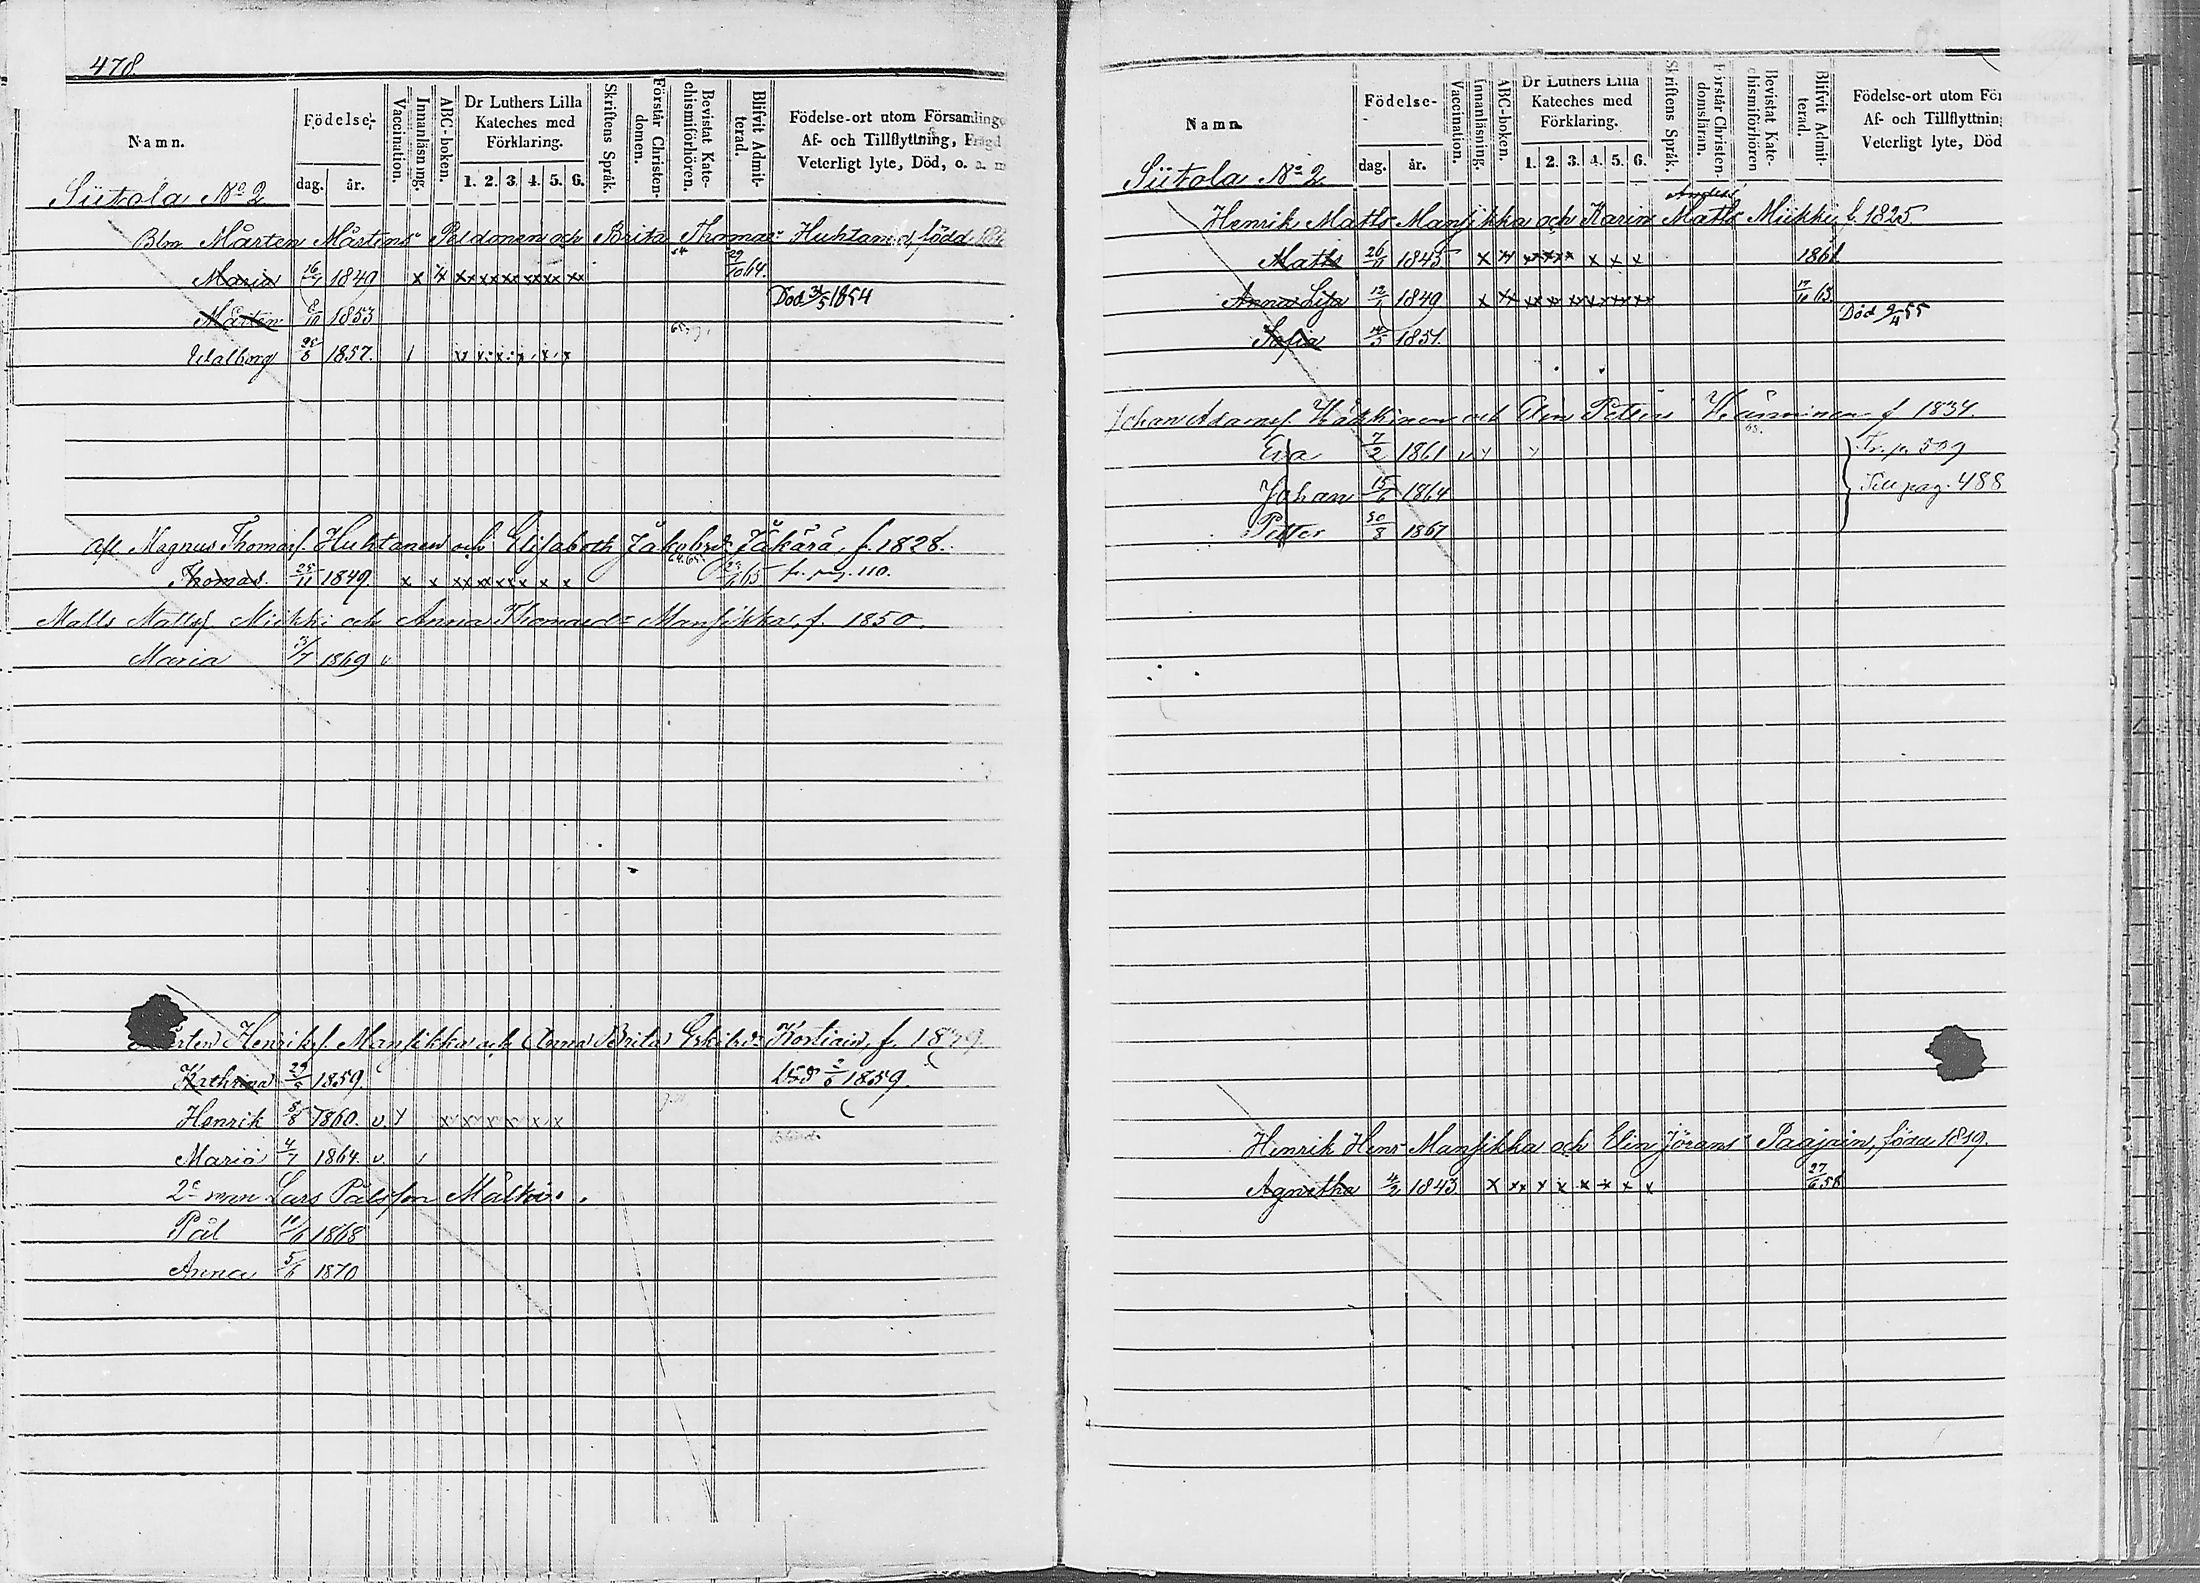 478.
Namn.
Födelse-
dag.
år.
Vaccination.
Innanläsning.
ABC-boken.
Dr Luthers Lilla
Kateches med
Förklaring.
1. 2. 3. 4. 5. 6.
Skriftens Språk.
Förstår Christen-
domen.
Bevistat Kate-
chismiförhören.
Blifvit Admit-
terad.
Födelse-ort utom Församlingen
Af- och Tillflyttning, Frägd
Veterligt lyte, Död, o. a. m
Siitola No 2
Mårten Mårtens Peldonen och Brita Thomas Huhtanen, född
Maria 16/7 1849 x x x x x x x x x x 29/10 64.
Död 31/5 1854
Mårten 1853
Walborg 1857.
Magnus Thomasf. Huhtanen och Elisabeth Jakobsd:r Jäkärä, f. 1828.
Thomas. 25/11 1849. x x x x x x x x x fr. pag. 110.
Matts Mattsf. Miikki och Anna Thomasd:r Mansikka, f. 1850.
Maria 1869 v
Henrikf. Mansikka och Anna Brita Eskilsd:r Kortiain, f.
Kathrina 29/5 1859. Död 2/6 1859
Henrik 5/8 1860. v x x x x x x x
Maria 4/7 1864. v.
2e man Lars Pålsson Mälkiä.
Pål 1868
Anna 5/6 1870
Namn.
Födelse-
dag.
år.
Vaccination.
Innanläsning.
ABC-boken.
Dr Luthers Lilla
Kateches med
Förklaring.
1. 2. 3. 4. 5. 6.
Skriftens Språk.
Förstår Christen-
domsläran.
Bevistat Kate-
chismiförhören
Blifvit Admit-
terad.
Födelse-ort utom För
Af- och Tillflyttning
Veterligt lyte, Död
Siitola No 2.
Anders
Henrik Matts Mansikka och Karin Matts Miikki, f. 1825
Matts 1845 x x x x x x x x x 1861
Anna Lisa 12/1 1849 x x x x x x x x x 63
Död 9/4 55
Sofia 14/5 1851.
Johan Adamsf. Häkkinen och Elin Petters f 1834.
Eva 7/2 1861 Fr. p. 509
Johan 15/6 1864 Till pag. 488
Petter 30/8 1867
Henrik Henr Mansikka och Elin Jörans Paajain, född 1819.
Agnetha 4/2 1843 x x x x x x x x x 27/6 58